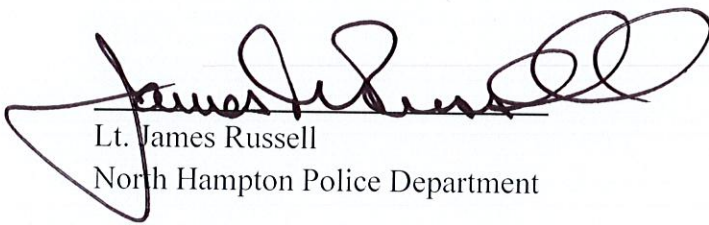 James W Russell
Lt. James Russell
North Hampton Police Department